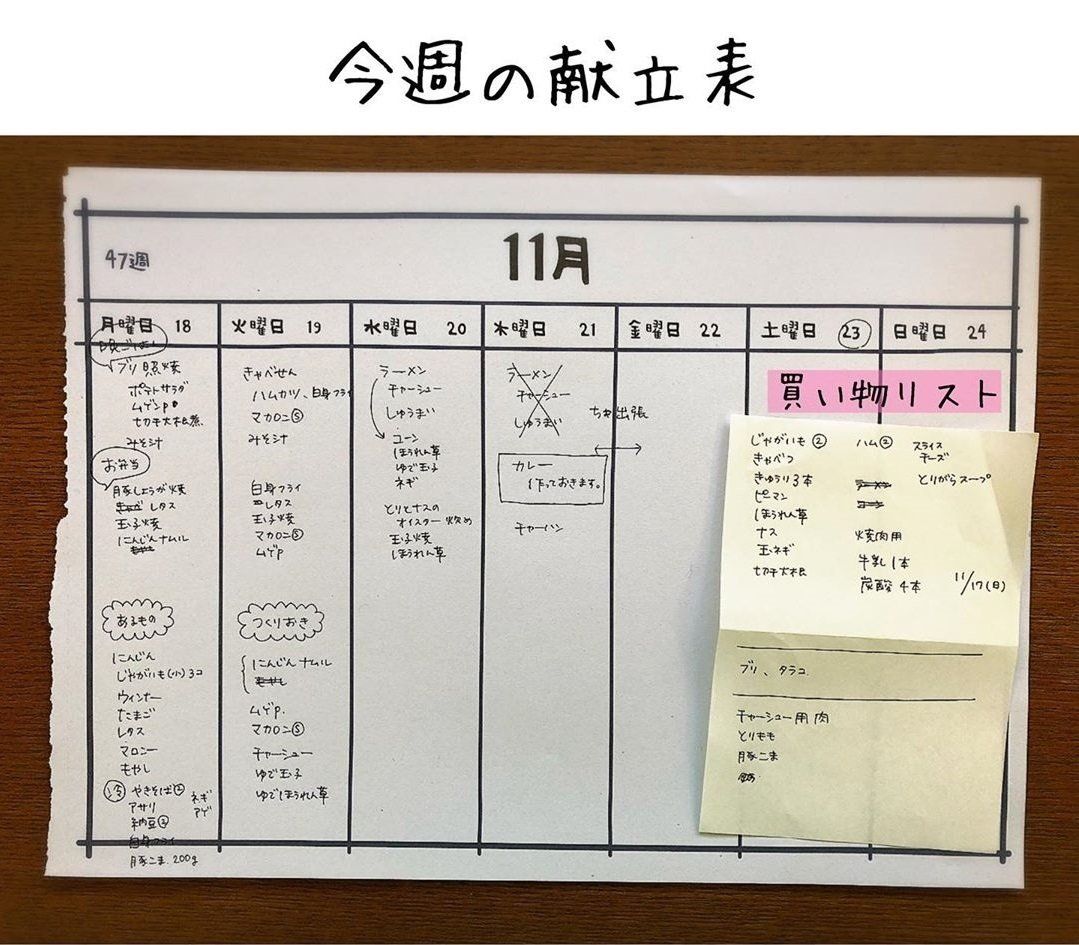 今週の献立表
47週
11月
月曜日 18
火曜日 19
水曜日 20
木曜日 21
金曜日 22
土曜日 23
日曜日 24
晩ごはん
ブリ照焼
ポテトサラダ
ムゲンP
切干大根煮
みそ汁
お弁当
豚しょうが焼
レタス
玉子焼
にんじんナムル
あるもの
にんじん
じゃがいも(小)3コ
ウィンナー
たまご
レタス
マロニー
もやし
冷 やきそば②
ネギ
アゲ
アサリ
納豆②
白身フライ
豚こま.200g
きゃべせん
ハムカツ、白身フライ
マカロニⓈ
みそ汁
白身フライ
レタス
玉子焼
マカロニⓈ
ムゲP
つくりおき
にんじんナムル
もやし
ムゲP.
マカロニⓈ
チャーシュー
ゆで玉子
ゆでほうれん草
ラーメン
チャーシュー
しゅうまい
コーン
ほうれん草
ゆで玉子
ネギ
とりとナスの
オイスター炒め
玉子焼
ほうれん草
ラーメン
チャーシュー
しゅうまい
カレー
作っておきます。
チャーハン
出張
買い物リスト
じゃがいも②
きゃべつ
きゅうり3本
ピーマン
ほうれん草
ナス
玉ネギ
切干大根
ハム②
ラーメン
コーン
焼肉用
牛乳1本
炭酸4本
スライス
チーズ
とりがらスープ
11/17(日)
ブリ、タラコ
チャーシュー用肉
とりもも
豚こま